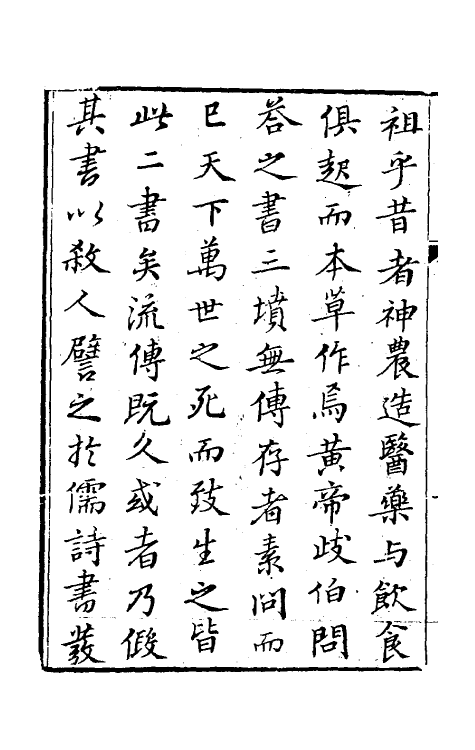 祖乎昔者神農造醫藥与飲食
俱起而本草作焉黃帝歧伯問
荅之書三墳無傳存者素问而
已天下萬世之死而致生之皆
此二書矣流傳既久或者乃假
其書以殺人譬之於儒詩書發